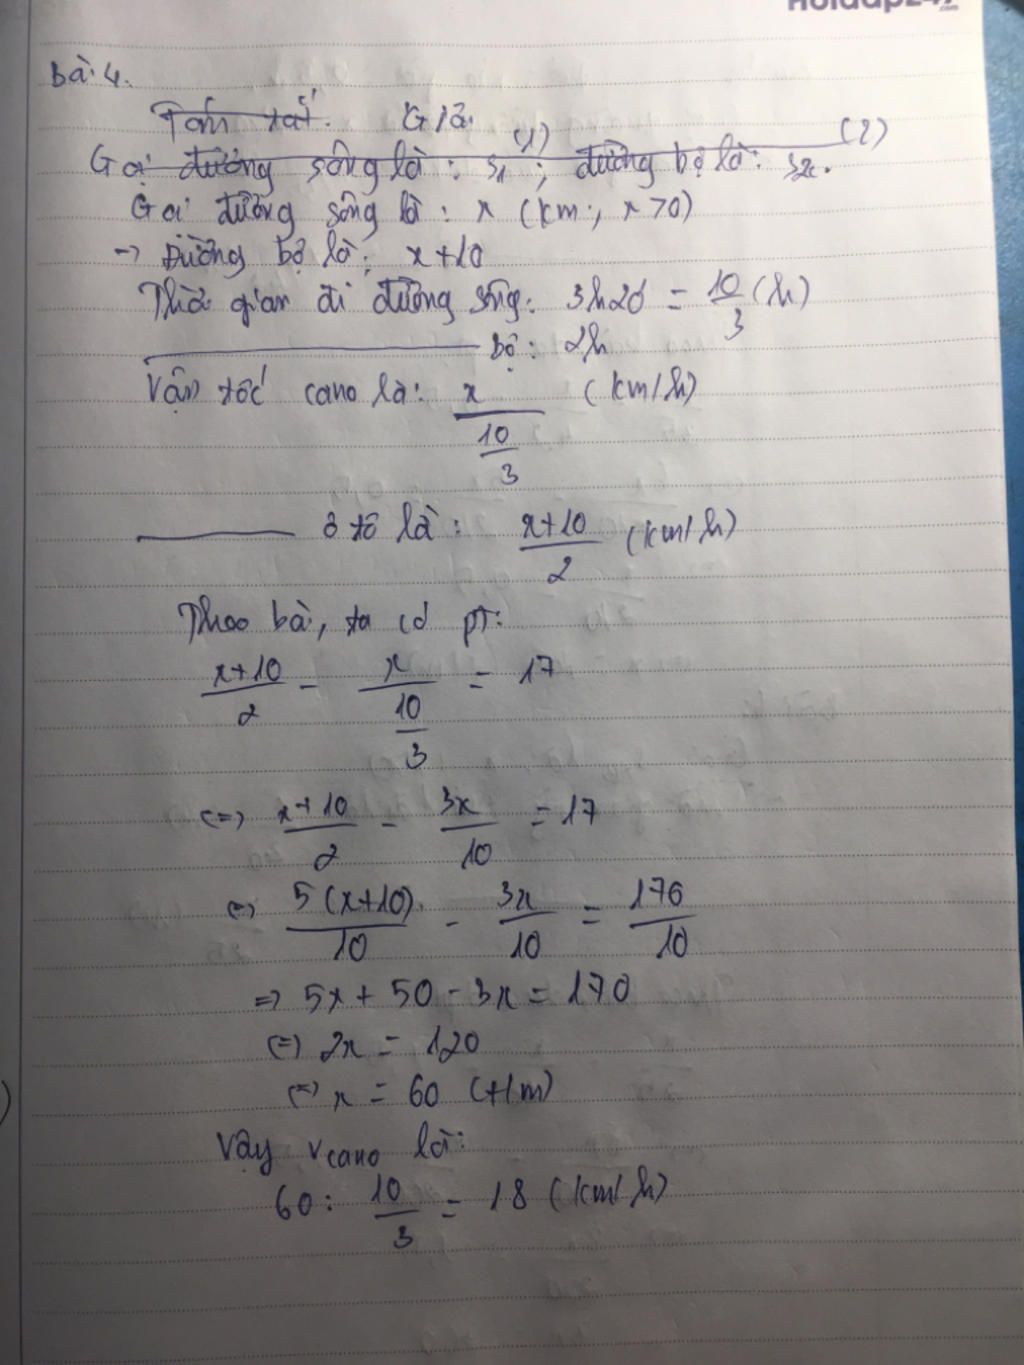 Hoidap247.com
Bài 4.
Tóm tắt. Giải
Gọi đường sông là: S₁ (1); đường bộ là: S₂. (2)
Gọi đường sông là: x (km; x>0)
→ Đường bộ là: x+10
Thời gian đi đường sông: 3h20' = 10/3 (h)
——— bộ: 2h
Vận tốc cano là: x/(10/3) (km/h)
——— ô tô là: (x+10)/2 (km/h)
Theo bài, ta có pt:
(x+10)/2 - x/(10/3) = 17
(=) (x+10)/2 - 3x/10 = 17
(=) 5(x+10)/10 - 3x/10 = 170/10
=> 5x + 50 - 3x = 170
(=) 2x = 120
(=) x = 60 (t/m)
Vậy vcano là:
60: 10/3 = 18 (km/h)